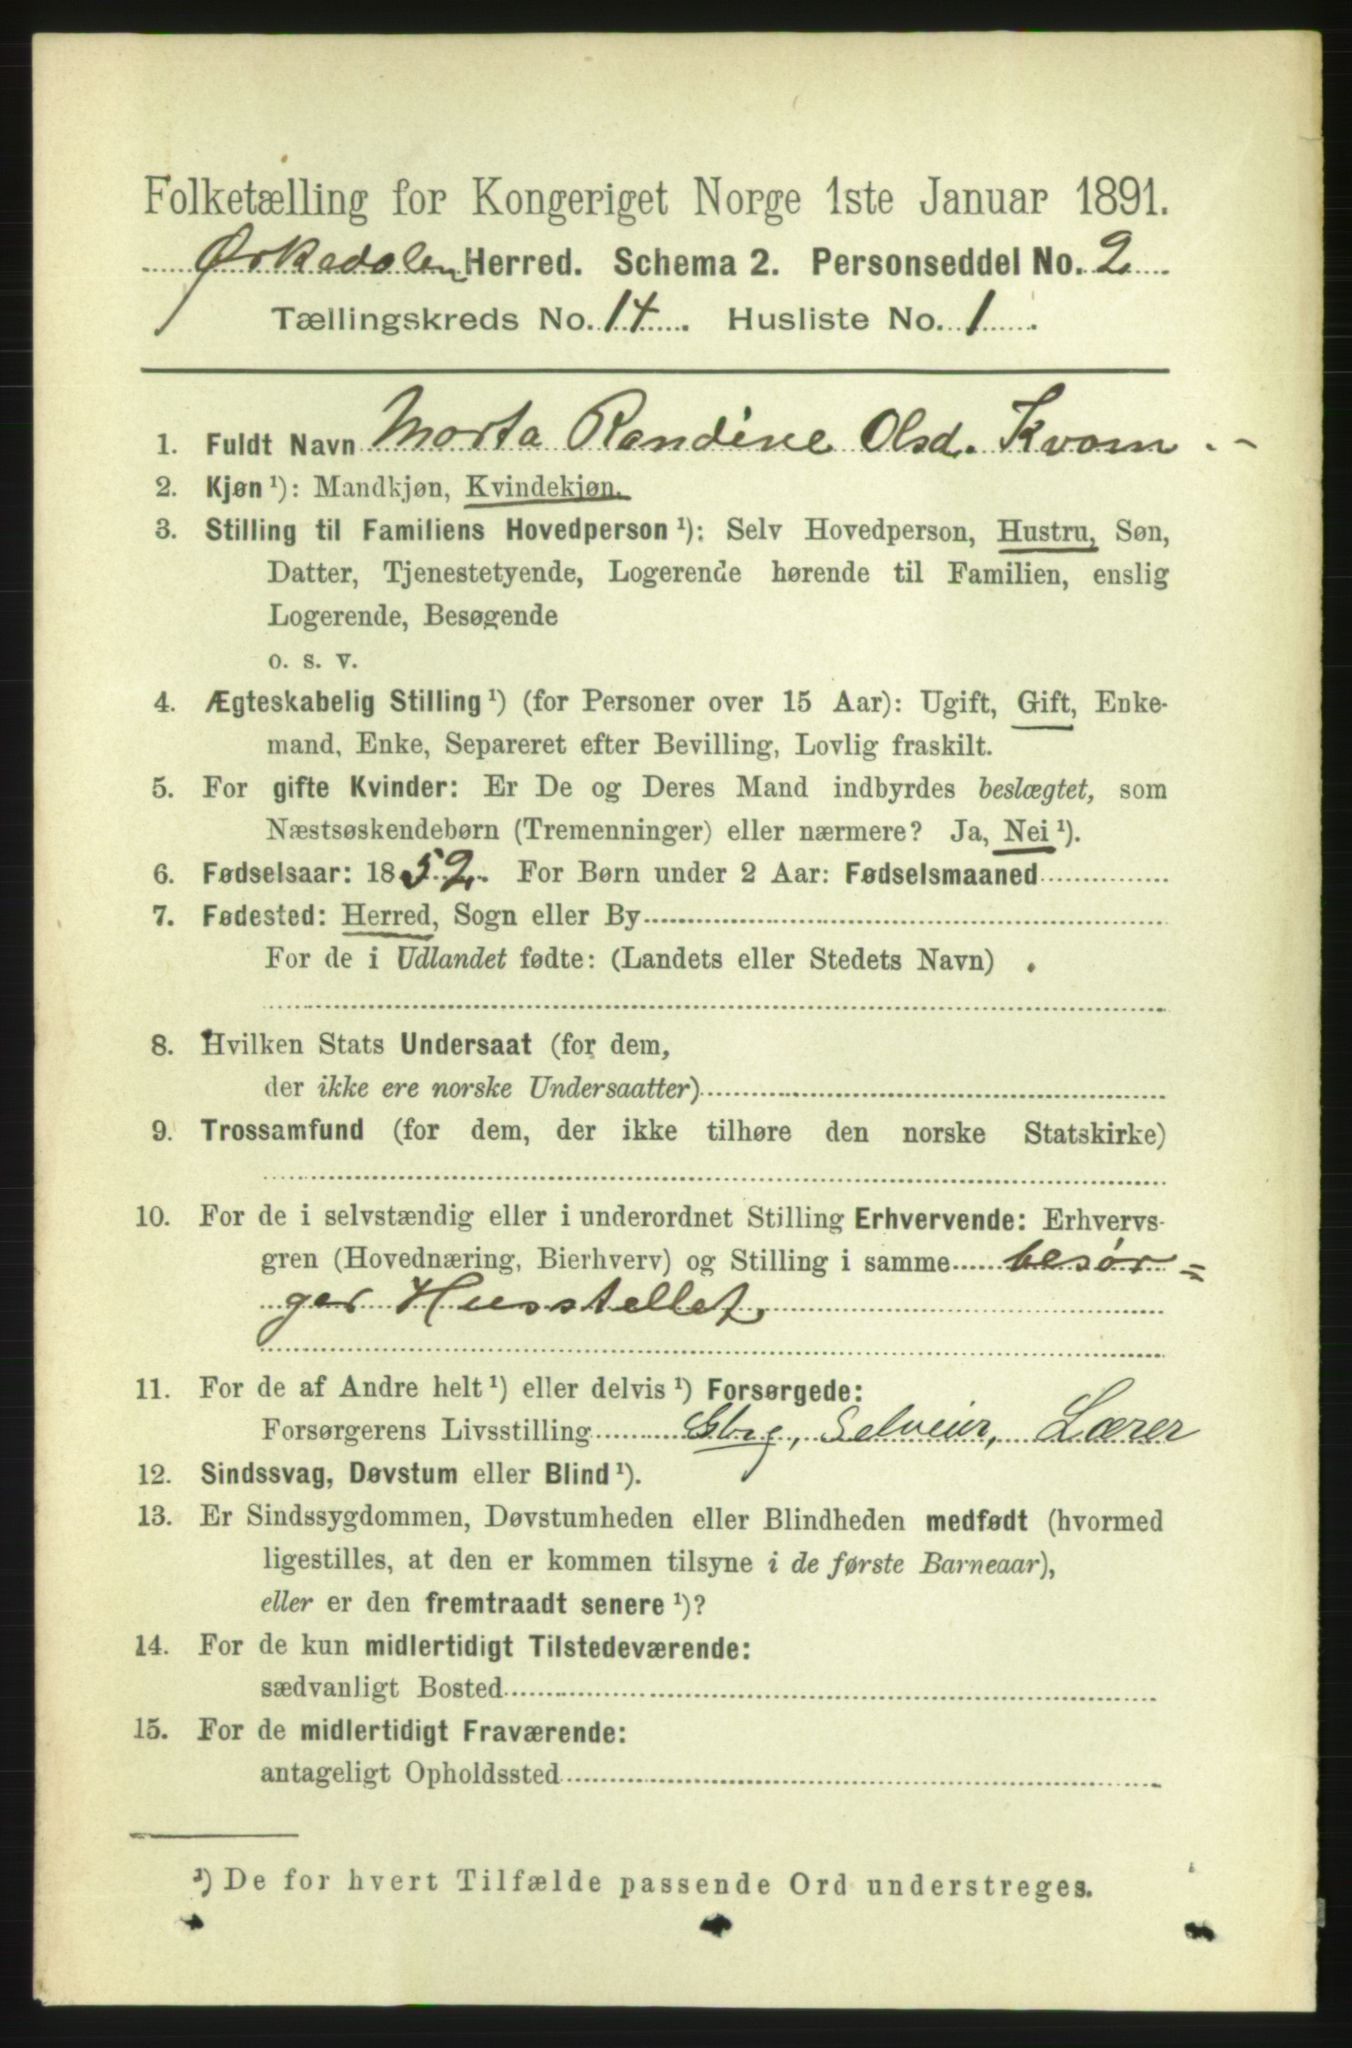 Folketælling for Kongeriget Norge 1ste Januar 1891.
Ørkedalen Herred. Schema 2. Personseddel No. 2
Tællingskreds No. 14. Husliste No. 1.
1. Fuldt Navn Marta Randine Olsd. Kvam.-
2. Kjøn¹): Mandkjøn, Kvindekjøn.
3. Stilling til Familiens Hovedperson¹): Selv Hovedperson, Hustru, Søn,
Datter, Tjenestetyende, Logerende hørende til Familien, enslig
Logerende, Besøgende
o. s. v.
4. Ægteskabelig Stilling¹) (for Personer over 15 Aar): Ugift, Gift, Enke-
mand, Enke, Separeret efter Bevilling, Lovlig fraskilt.
5. For gifte Kvinder: Er De og Deres Mand indbyrdes beslægtet, som
Næstsøskendebørn (Tremenninger) eller nærmere? Ja, Nei¹).
6. Fødselsaar: 1852. For Børn under 2 Aar: Fødselsmaaned
7. Fødested: Herred, Sogn eller By
For de i Udlandet fødte: (Landets eller Stedets Navn)
8. Hvilken Stats Undersaat (for dem,
der ikke ere norske Undersaatter)
9. Trossamfund (for dem, der ikke tilhøre den norske Statskirke)
10. For de i selvstændig eller i underordnet Stilling Erhvervende: Erhvervs-
gren (Hovednæring, Bierhverv) og Stilling i samme besør=
ger Husstellet.
11. For de af Andre helt¹) eller delvis¹) Forsørgede:
Forsørgerens Livsstilling Gbrg, Selveier, Lærer
12. Sindssvag, Døvstum eller Blind¹).
13. Er Sindssygdommen, Døvstumheden eller Blindheden medfødt (hvormed
ligestilles, at den er kommen tilsyne i de første Barneaar),
eller er den fremtraadt senere¹)?
14. For de kun midlertidigt Tilstedeværende:
sædvanligt Bosted
15. For de midlertidigt Fraværende:
antageligt Opholdssted
¹) De for hvert Tilfælde passende Ord understreges.